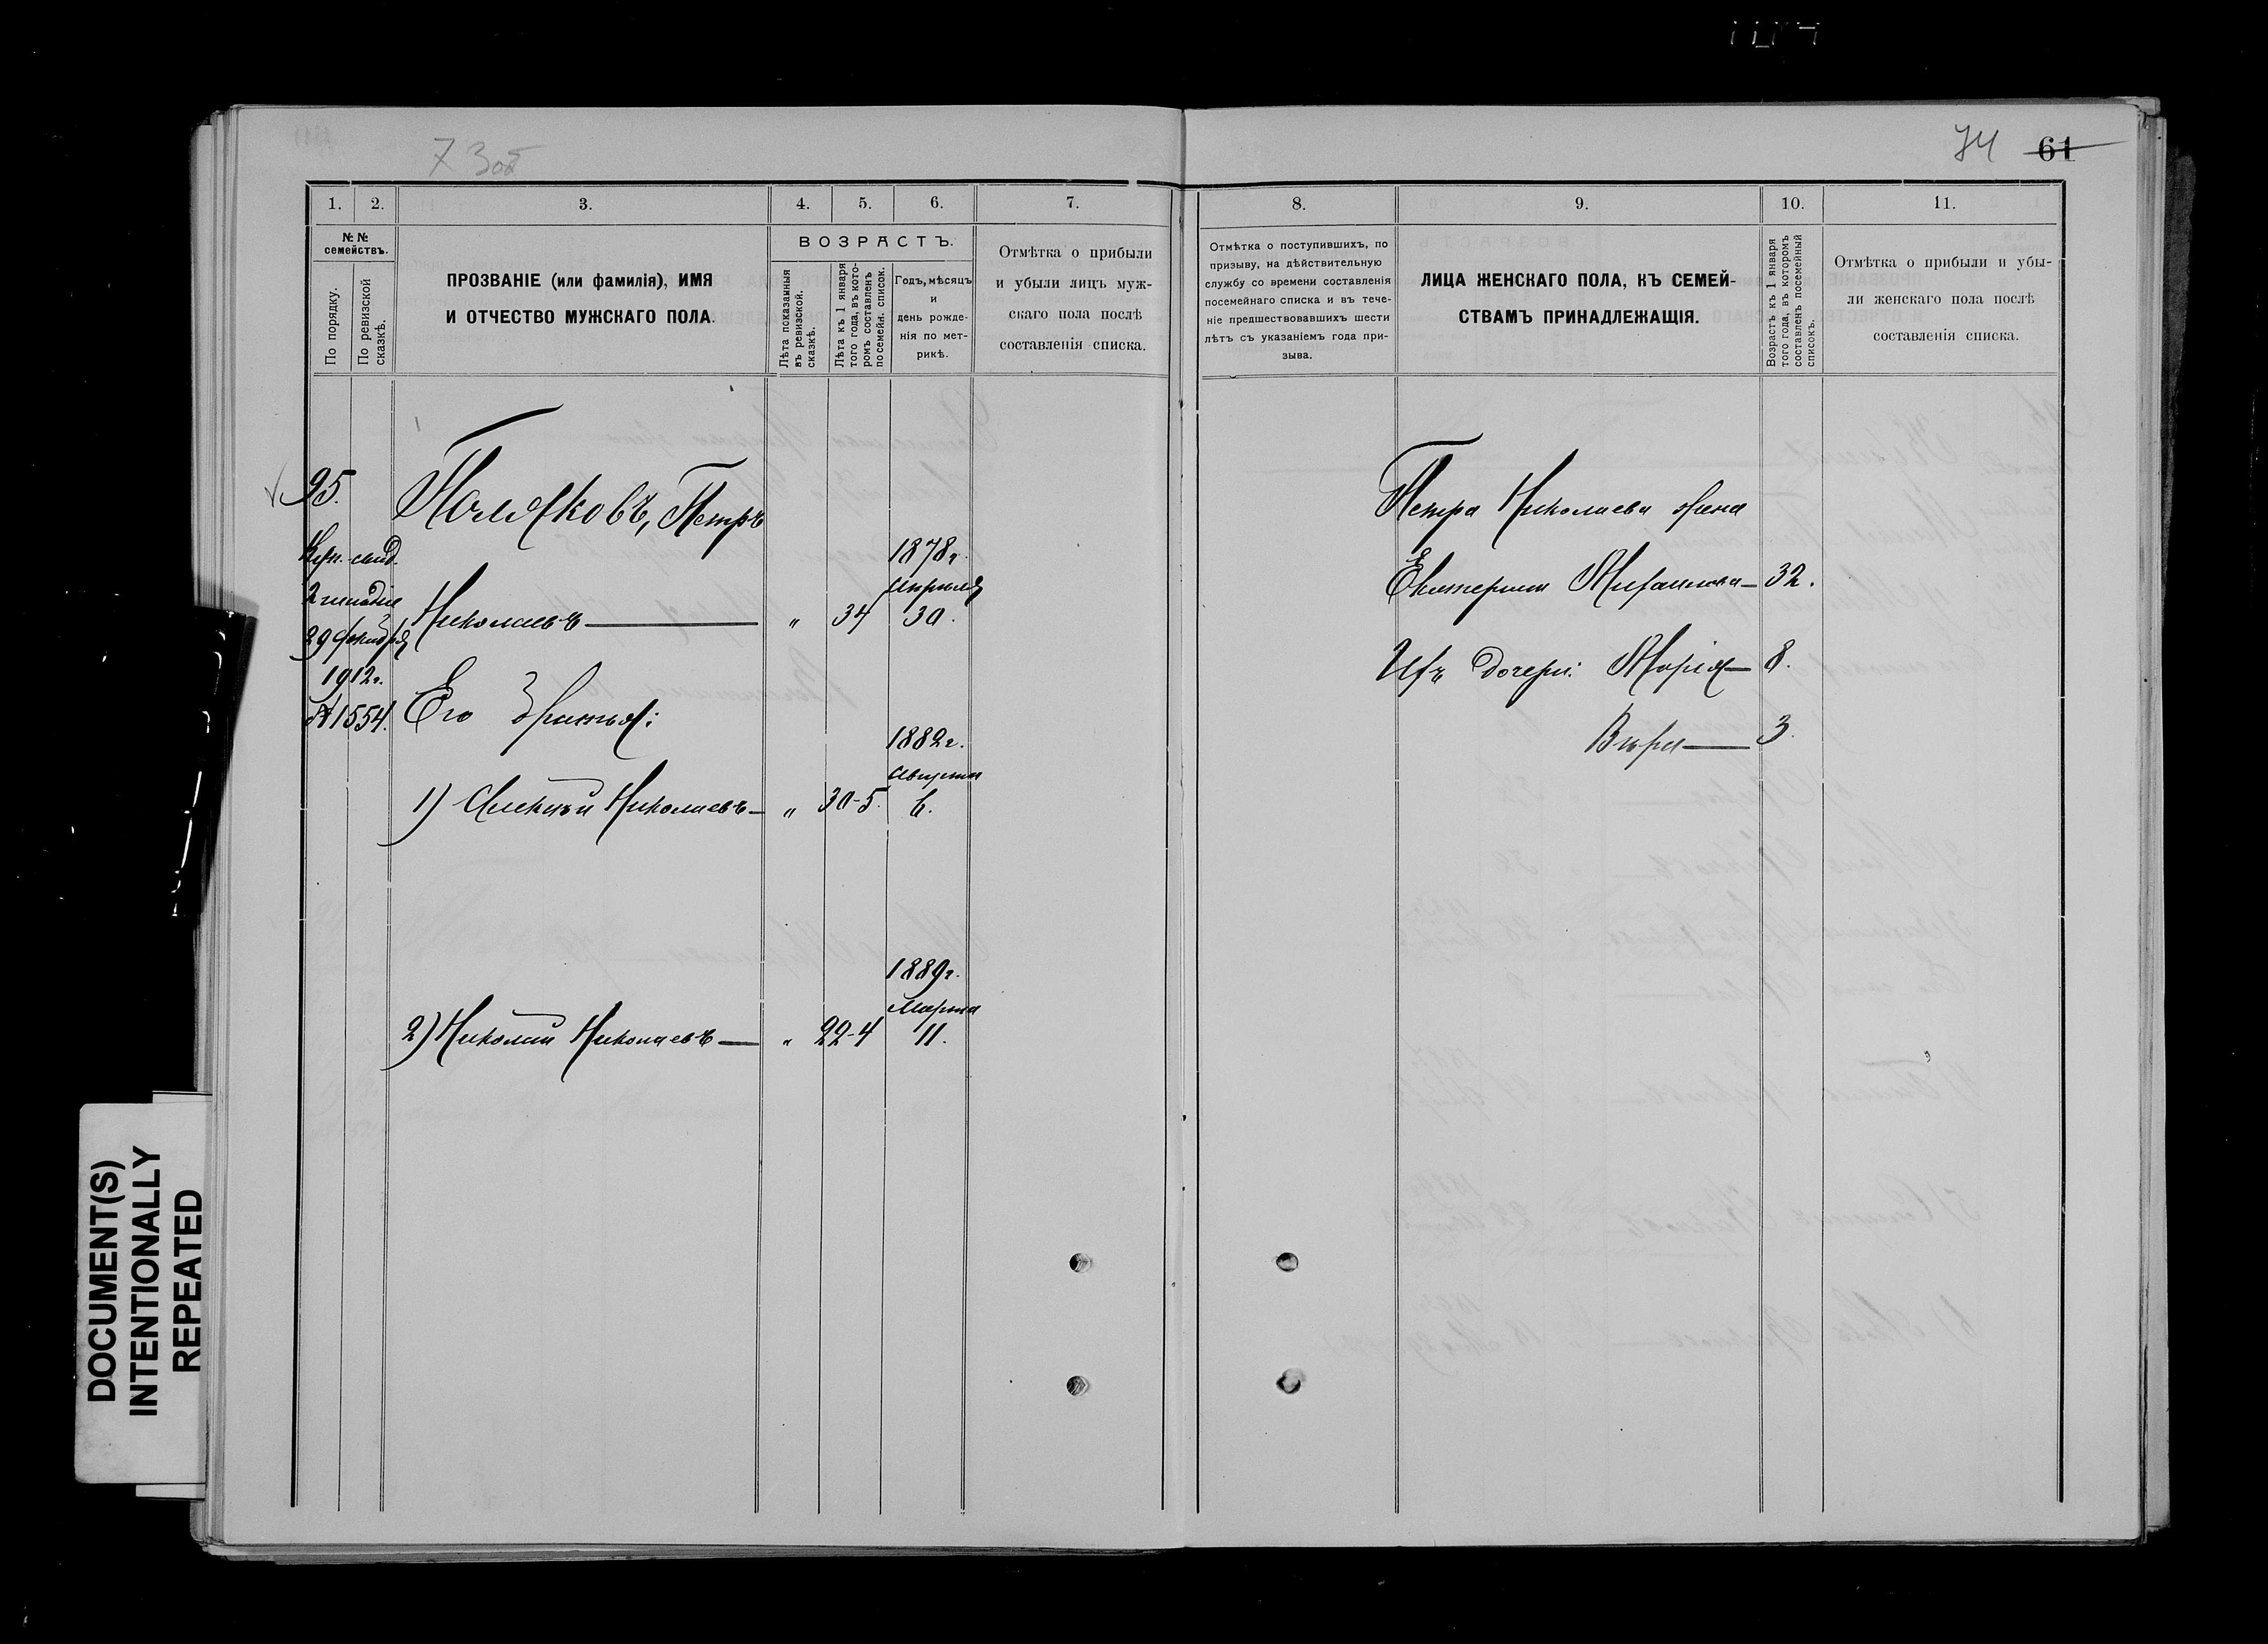 73об
74 61
1. 2. 3. 4. 5. 6. 7.
№ №
семействъ.
По порядку.
По ревизской
сказкѣ.
ПРОЗВАНІЕ (или фамилія), ИМЯ
И ОТЧЕСТВО МУЖСКАГО ПОЛА.
ВОЗРАСТЪ.
Лѣта показанныя
въ ревизской.
сказкѣ.
Лѣта къ 1 января
того года, въ кото-
ромъ составленъ
посемейн. список.
Годъ, мѣсяцъ
и
день рожде-
нія по мет-
рикѣ.
Отмѣтка о прибыли
и убыли лицъ муж-
скаго пола послѣ
составленія списка.
95.
Поляковъ, Петръ
Куп. свид.
2 гильдіи
1878г.
Апрѣля
Николаевъ — „ 34 30.
1912г.
№ 1554.
Его братья:
1882г.
Августа
1) Алексѣй Николаевъ — „ 30-5. 6.
1889г.
Марта
2) Николай Николаевъ — „ 22-4 11.
8. 9. 10. 11.
Отмѣтка о поступившихъ, по
призыву, на дѣйствительную
службу со времени составленія
посемейнаго списка и въ тече-
ніе предшествовавшихъ шести
лѣтъ съ указаніемъ года при-
зыва.
ЛИЦА ЖЕНСКАГО ПОЛА, КЪ СЕМЕЙ-
СТВАМЪ ПРИНАДЛЕЖАЩІЯ.
Возрастъ къ 1 января
того года, въ которомъ
составленъ посемейный
списокъ.
Отмѣтка о прибыли и убы-
ли женскаго пола послѣ
составленія списка.
Петра Николаева жена
Екатерина Михайлова — 32.
Ихъ дочери: Марія — 8.
Вѣра — 3.
DOCUMENT(S)
INTENTIONALLY
REPEATED